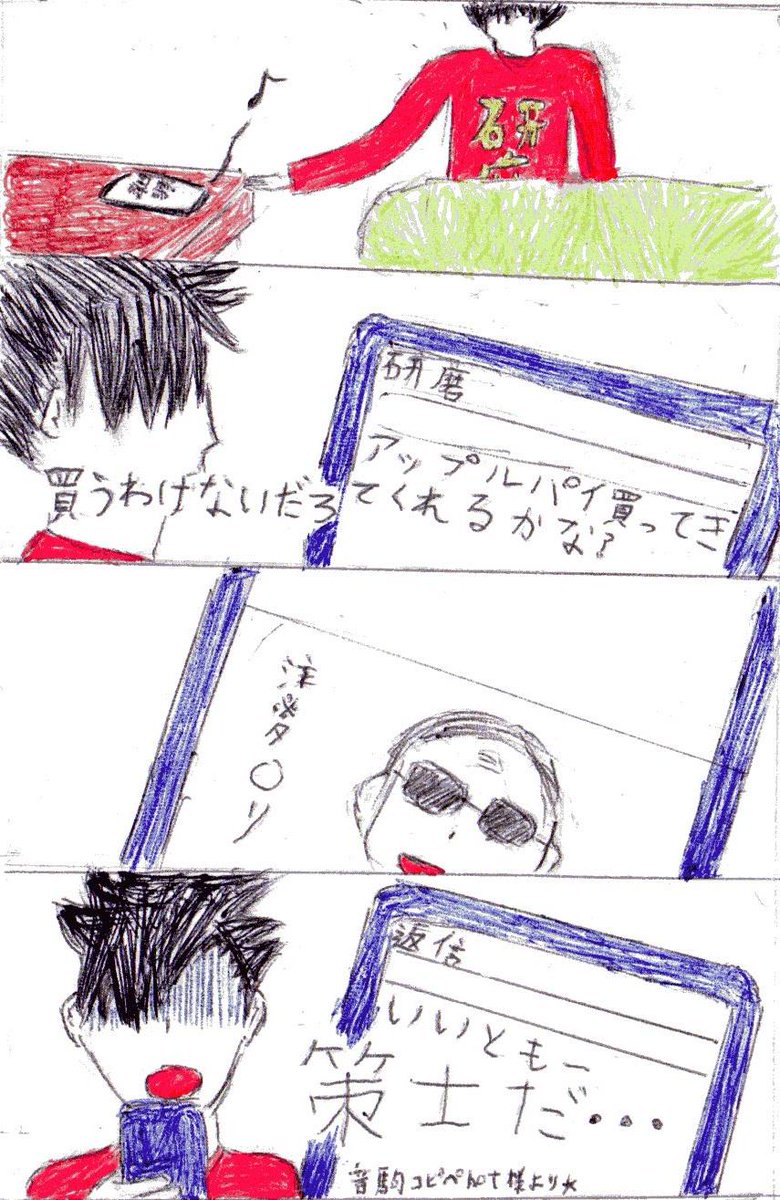 研
研磨
アップルパイ買ってき
てくれるかな?
買うわけないだろ
注※タ〇リ
返信
いいともー
策士だ・・・
音駒コピペbot様より☆